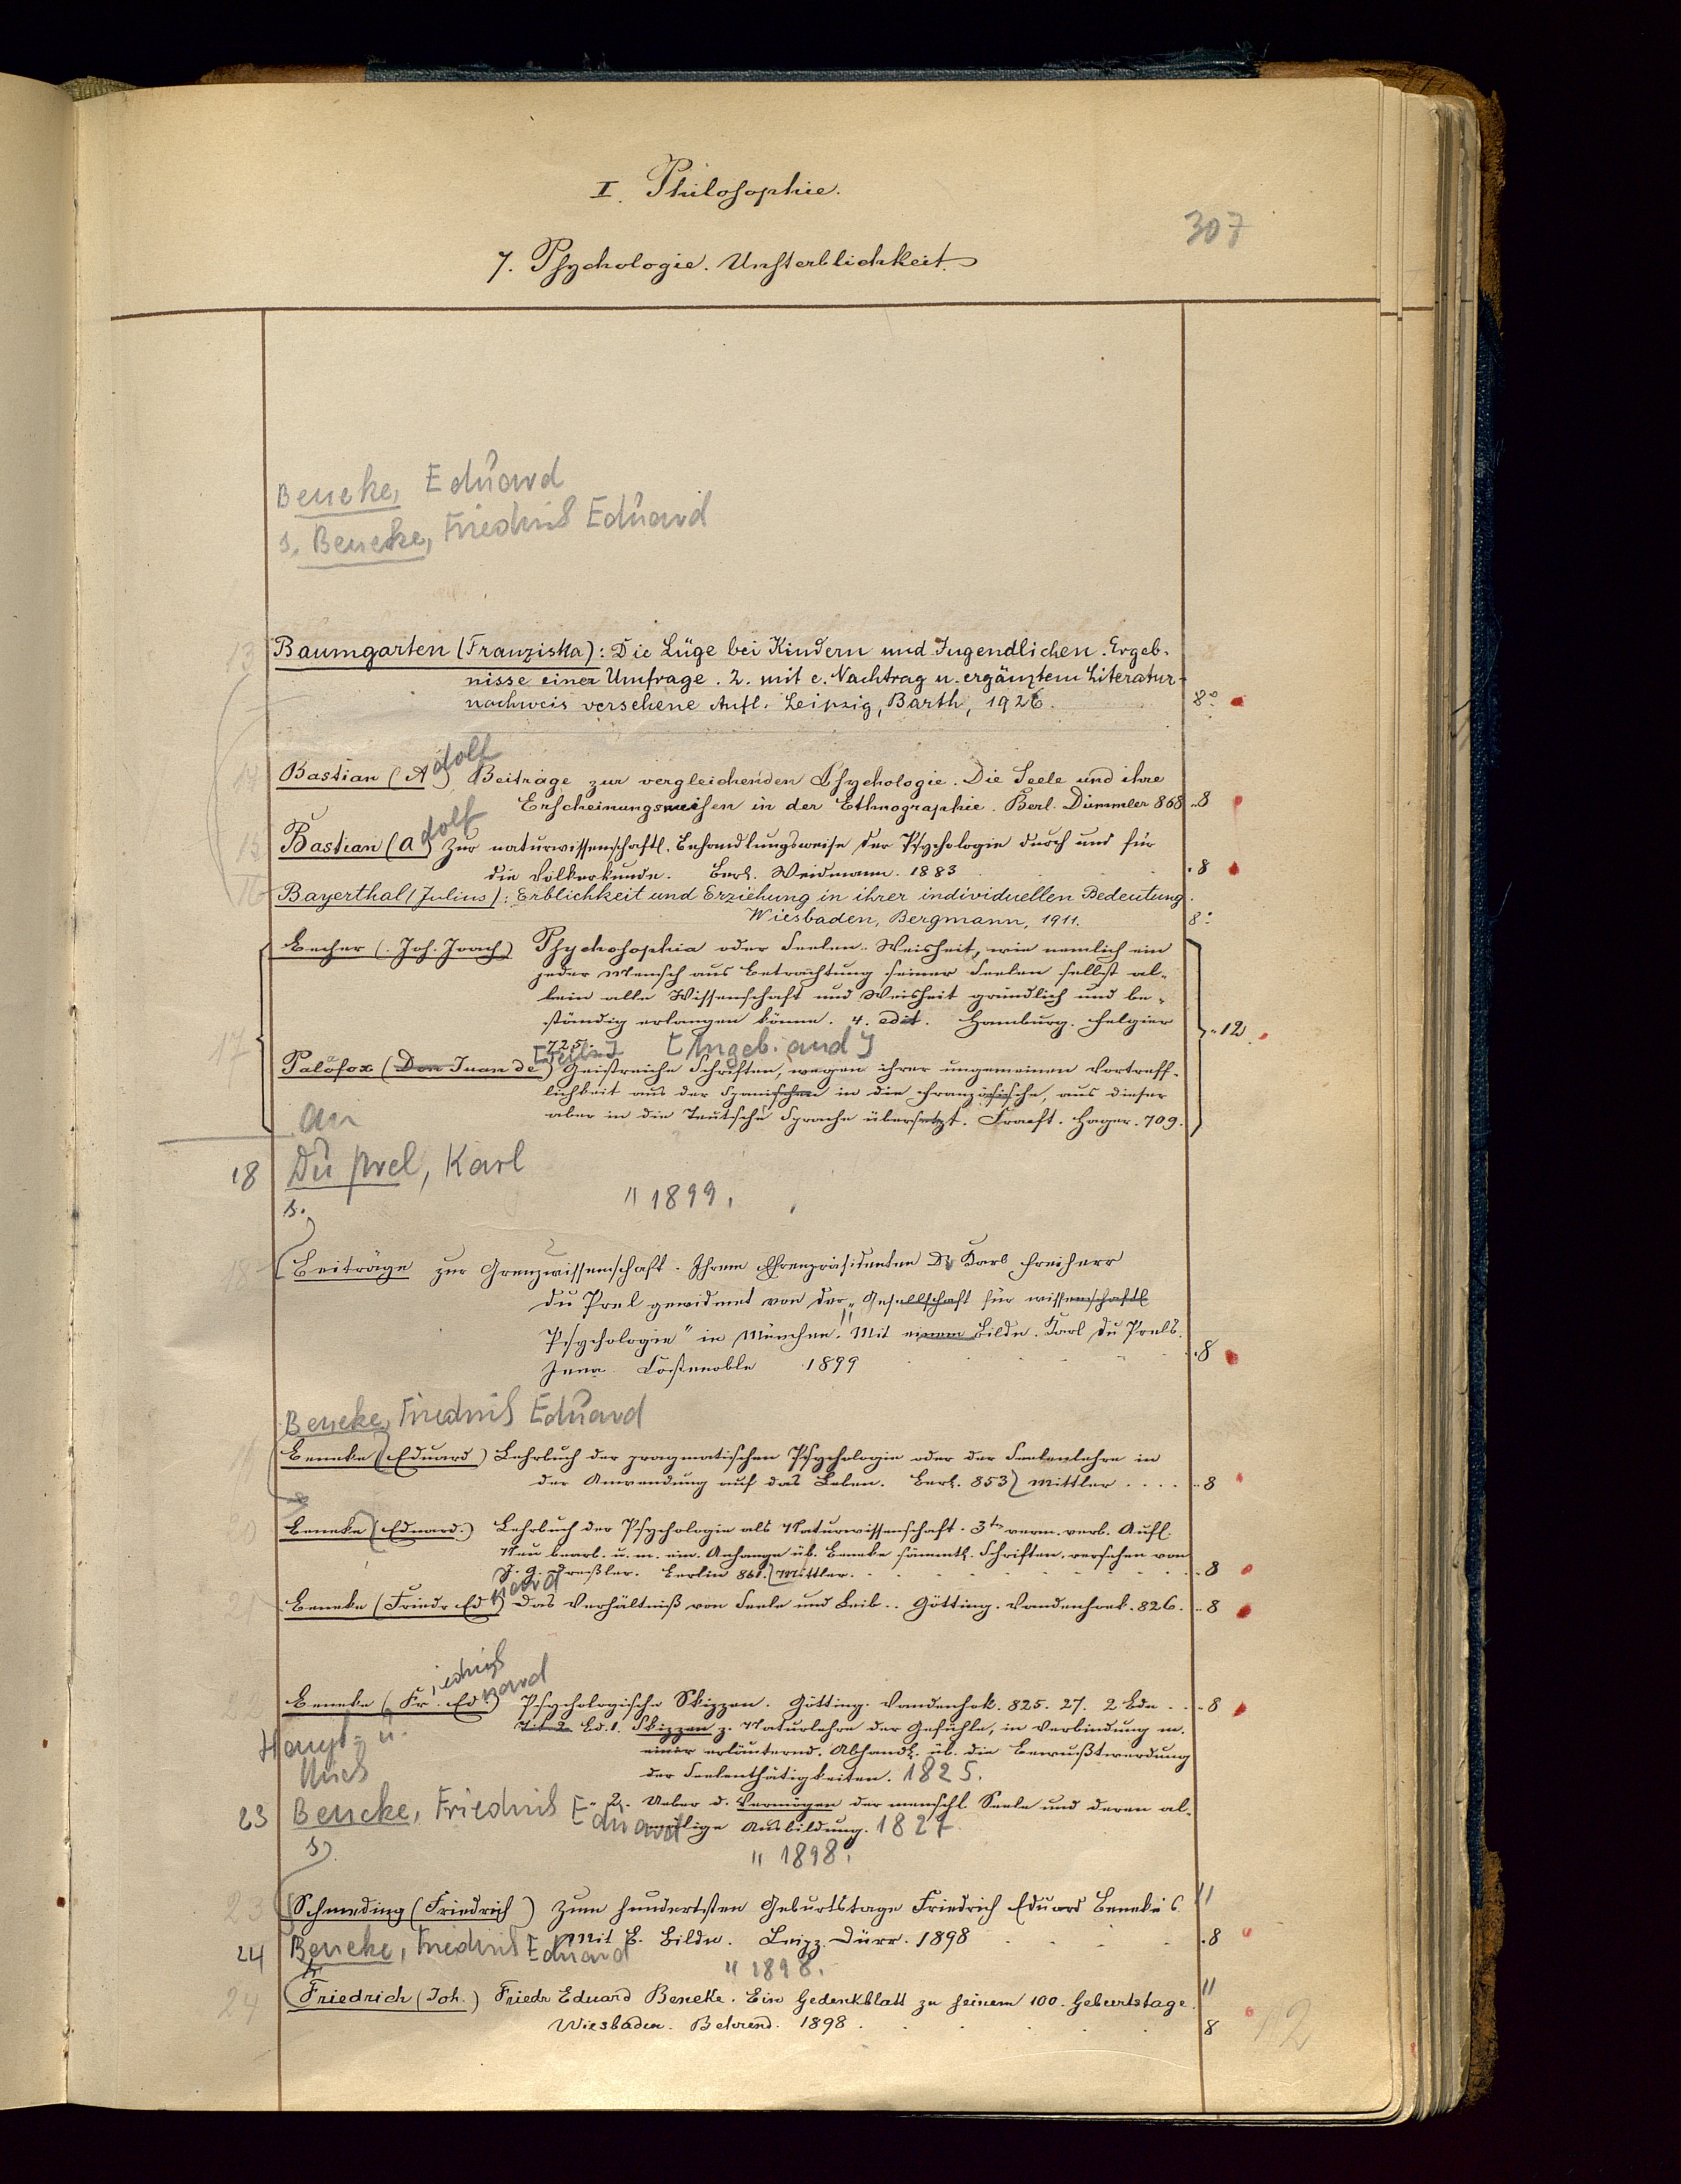 I. Philosophie.
307
7. Psychologie. Unsterblichkeit.
Beneke, Eduard
s. Beneke, Friedrich Eduard
13 Baumgarten (Franziska): Die Lüge bei Kindern und Jugendlichen. Ergeb-
nisse einer Umfrage. 2. mit e. Nachtrag u. ergänztem Literatur-
nachweis versehene Aufl. Leipzig, Barth, 1926. 8°
14 Bastian (Adolf) Beiträge zur vergleichenden Psychologie. Die Seele und ihre
Erscheinungsweisen in der Ethnographie. Berl. Dümmler 868 8
15 Bastian (Adolf) Zur naturwissenschaftl. Behandlungsweise der Psychologie durch und für
die Völkerkunde. Berl. Weidmann. 1883 8
16 Bayerthal (Julius): Erblichkeit und Erziehung in ihrer individuellen Bedeutung.
Wiesbaden, Bergmann, 1911. 8°
Becher (Joh. Joach) Psychosophia oder Seelen-Weisheit, wie nemlich ein
jeder Mensch aus Betrachtung seiner Seelen selbst al-
lein alle Wissenschaft und Weisheit gründlich und be-
ständig erlangen könne. 4. edit. Hamburg. Felgier 12
725.
17 [Angeb. and]
Palåfox (Don Juan de) Geistreiche Schriften, wegen ihrer ungemeinen Vortreff-
lichkeit aus der Spanischen in die Französische, aus dieser
aber in die Teutsche Sprache übersetzt. Fracft. Hager. 709.
an
18 Du Prel, Karl
s. " 1899.
18 Beiträge zur Grenzwissenschaft. Ihrem Ehrenpräsidenten Dr Karl Freiherr
du Prel gewidmet von der „Gesellschaft für wissenschaftl
Psychologie" in München. Mit einem Bilde. Karl du Prels.
Jena Costenoble 1899 8
Beneke, Friedrich Eduard
19 Beneke (Eduard) Lehrbuch der pragmatischen Psychologie oder der Seelenlehre in
der Anwendung auf das Leben. Berl. 853 Mittler 8
20 Beneke (Eduard.) Lehrbuch der Psychologie als Naturwissenschaft. 3te verm. verb. Aufl.
Neu bearb. u. m. ein. Anhange üb. Beneke sämmtl. Schriften, versehen von
J. G. Dreßler. Berlin 861. Mittler. 8
21 Beneke (Friedr Eduard) Das Verhältniß von Seele und Leib.. Götting. Vandenhoek. 826. 8
22 Beneke (Friedrich Eduard) Psychologische Skizzen. Götting. Vandenhok. 825. 27. 2 Bde 8
Bd. 1. Skizzen z. Naturlehre der Gefühle, in Verbindung m.
Haupt- u.
einer erläuternd. Abhandl. üb. die Bewußtwerdung
der Seelenthätigkeiten. 1825.
" 2. Ueber d. Vermögen der menschl. Seele und deren al-
23 Beneke, Friedrich Eduard
mälige Ausbildung. 1827.
s. " 1898.
23 Schmeding (Friedrich) Zum hundertsten Geburtstage Friedrich Eduard Beneke's
Mit B. Bilde. Leipz. Dürr. 1898 8
24 Beneke, Friedrich Eduard
" 1898.
24 Friedrich (Joh.) Friedr Eduard Beneke. Ein Gedenkblatt zu seinem 100. Geburtstage.
Wiesbaden. Behrend. 1898. 8
12